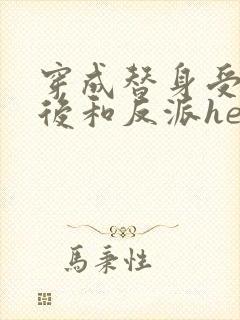 穿成替身受
後和反派he
馬秉性